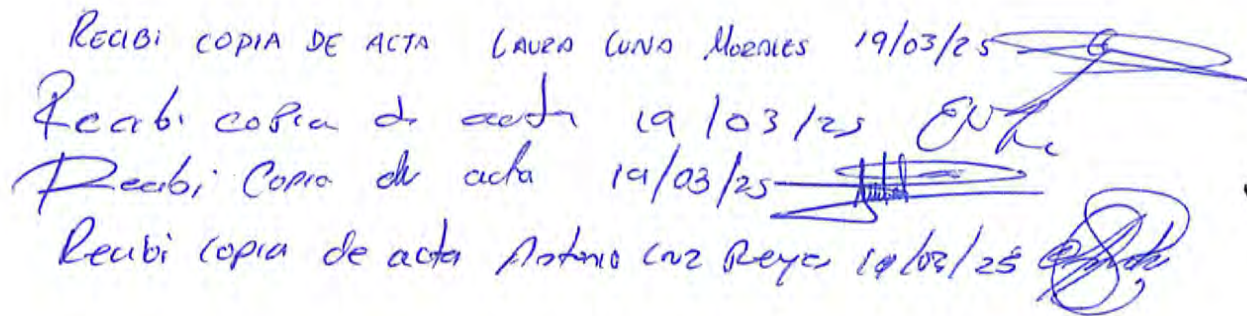 RECIBI COPIA DE ACTA LAURA LUNA MORALES 19/03/25
Recibi copia de acta 19/03/25
Recibi Copia de acta 19/03/25
Recibi copia de acta Antonio Cruz Reyes 19/03/25